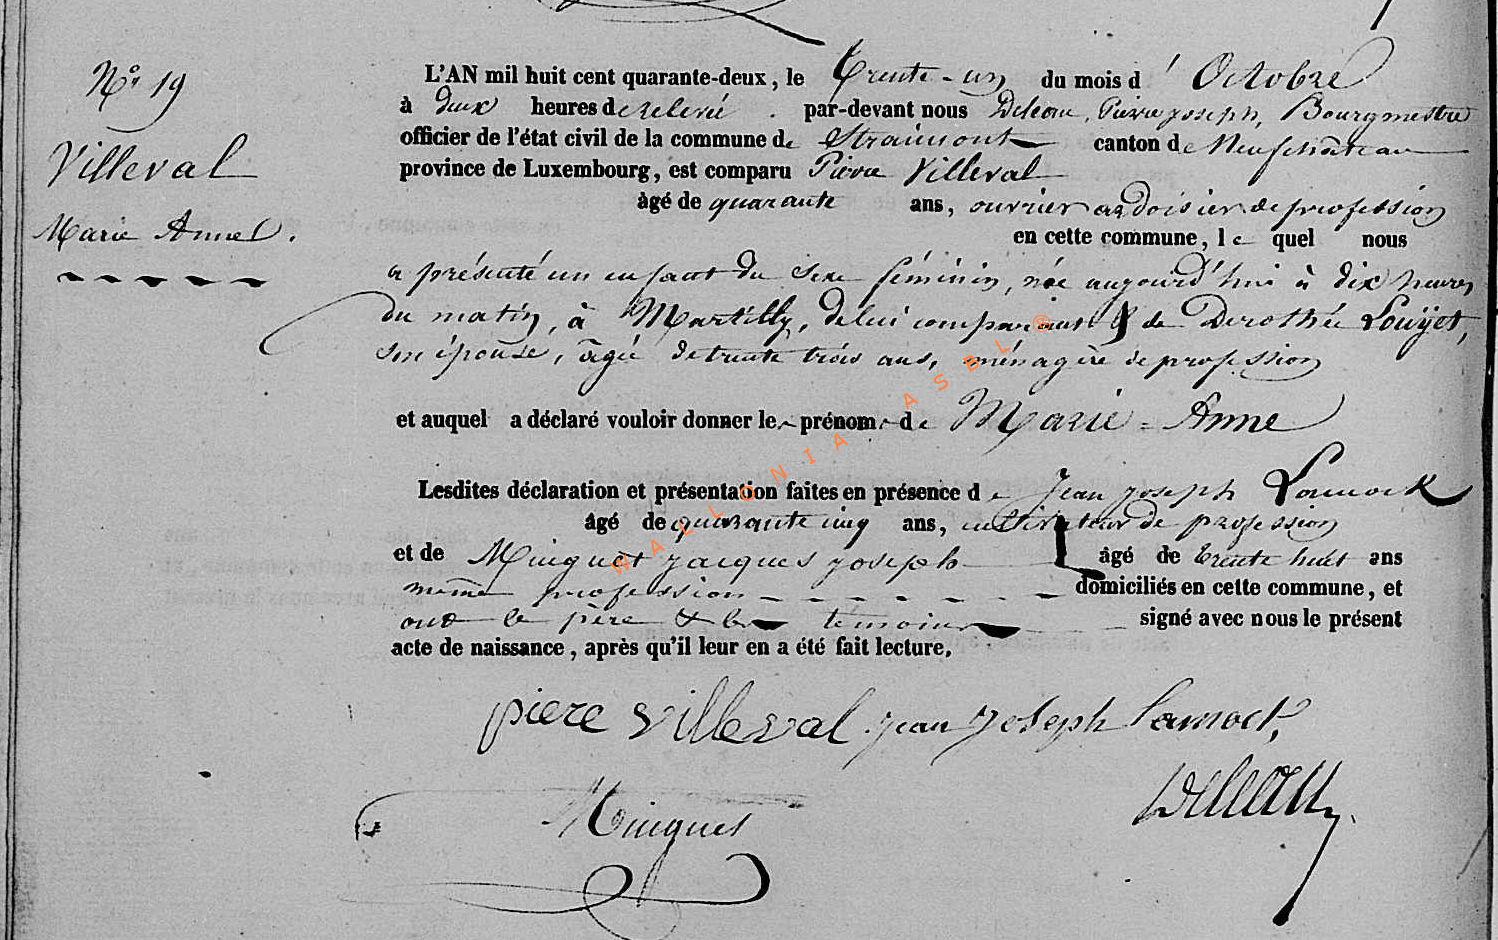 N° 19
Villeval
Marie Anne.
L'AN mil huit cent quarante-deux, le Trente-un du mois d' Octobre
à deux heures de relevée. par-devant nous Deleau, Pierre joseph, Bourgmestre
officier de l'état civil de la commune de Straimont canton de Neufchâteau
province de Luxembourg, est comparu Pierre Villeval
âgé de quarante ans, ouvrier ardoisier de profession
en cette commune, le quel nous
a présenté un enfant du sexe féminin, née aujourd'hui à dix heures
du matin, à Martilly, de lui comparant & de Dorothée Louÿet,
son épouse, âgée de trente trois ans, ménagère de profession
et auquel a déclaré vouloir donner les prénoms de Marie-Anne
Lesdites déclaration et présentation faites en présence de Jean joseph Lamock
âgé de quarante cinq ans, cultivateur de profession
et de Minguet jacques joseph âgé de trente huit ans
même profession domiciliés en cette commune, et
ont le père & les témoins signé avec nous le présent
acte de naissance, après qu'il leur en a été fait lecture.
piere villeval jean joseph Lamock
Minguet Deleau
WALLONIA ASBL ©